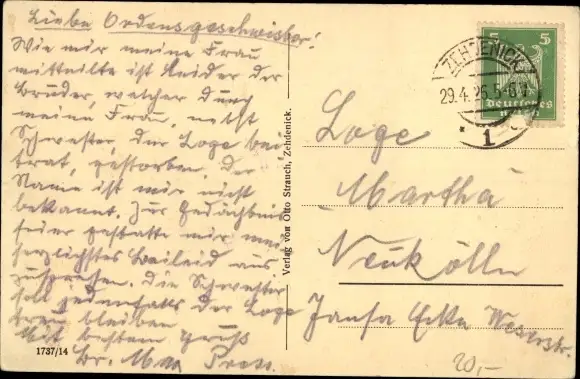 Liebe Ordensgeschwister!
Wie mir meine Frau
mitteilte ist leider der
Bruder, welcher durch
meine Frau, nebst
Schwester, der Loge bei
trat, gestorben. Der
Name ist mir nicht
bekannt. Zur Gedächtnis
feier gestatte mir mein
herzlichstes Beileid aus
zusprechen. Die Schwester
soll jedenfalls der Loge
treu bleiben
Mit bestem Gruß
Br.
1737/14
Verlag von Otto Strauch, Zehdenick.
5 5
Deutsches
ZEHDENICK
29.4.26.5-6
* 1
Loge
Martha
Neukölln
Jansa Ecke Weserstr.
20,-